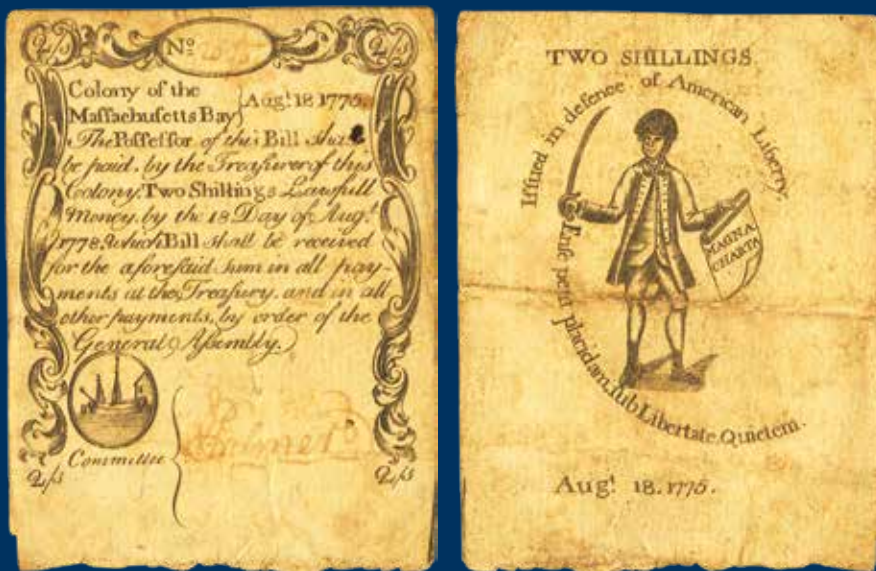 2/s
No
2/s
Colony of the
Maſſachusetts Bay } Augt. 18 1775.
The Poſſeſſor of this Bill shall
be paid, by the Treaſurer of this
Colony, Two Shillings Lawfull
Money, by the 18 Day of Augt.
1778, which Bill shall be received
for the aforeſaid sum in all pay-
ments at the Treaſury, and in all
other payments, by order of the
General Aſsembly.
Committee
2/s
2/s
TWO SHILLINGS.
Iſſued in defence of American Liberty.
MAGNA
CHARTA
Enſe petit placidam, ſub Libertate Quietem.
Augt. 18. 1775.